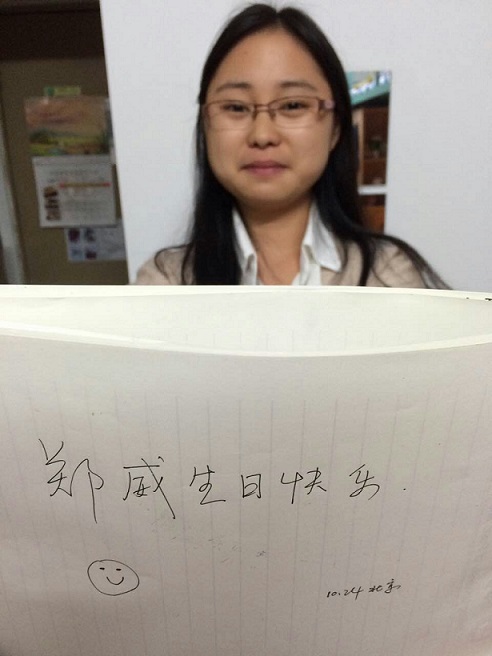 郑威生日快乐.
10.24 北京